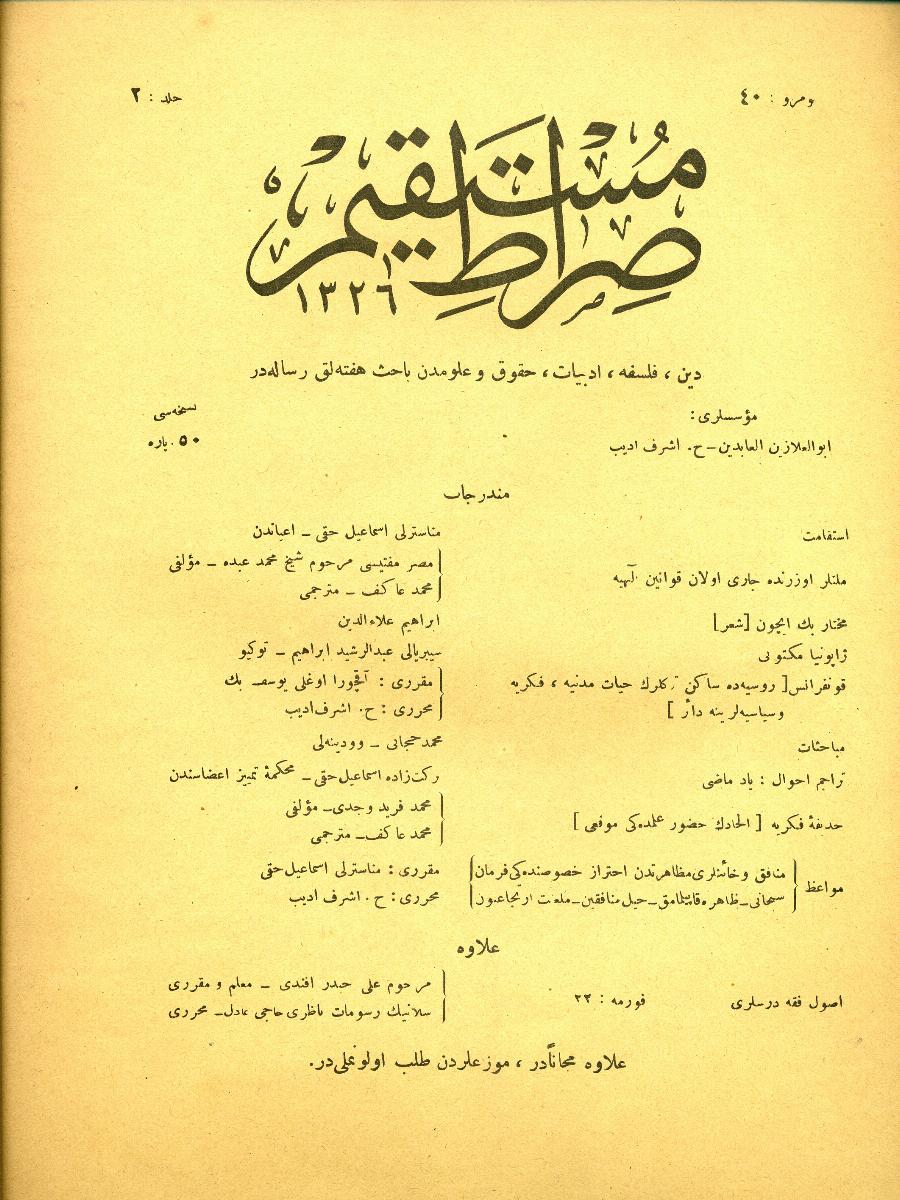 ومرو : ٤٠
جلد : ٢
صراط مستقيم
١٣٢٦
دين ، فلسفه ، ادبيات ، حقوق و علومدن باحث هفته‌لق رساله‌در
مؤسسلرى :
نسخه‌سى
ابوالعلازين العابدين – ح. اشرف اديب
٥٠ پاره
مندرجات
استقامت
مناسترلى اسماعيل حقى – اعياندن
ملتلر اوزرنده جارى اولان قوانين الٓهيه
مصر مفتيسى مرحوم شيخ محمد عبده – مؤلفى
محمد عاكف – مترجمى
مختار بك ايچون [شعر]
ابراهيم علاءالدين
ژاپونيا مكتوبى
سيبريالى عبدالرشيد ابراهيم – توكيو
قونفرانس [ روسيه‌ده ساكن تركلرك حيات مدنيه ، فكريه
وسياسيه‌لرينه دائر ]
مقررى : آقچورا اوغلى يوسف بك
محررى : ح. اشرف‌اديب
مباحثات
محمدحجانى – وودينه‌لى
تراجم احوال : ياد ماضى
بركت‌زاده اسماعيل‌حقى – محكمهٔ تمييز اعضاسندن
حديقهٔ فكريه [ الحادك حضور علمده‌كى موقعى ]
محمد فريد وجدى – مؤلفى
محمد عاكف – مترجمى
مواعظ
منافق و خائنلرى مظاهرتدن احتراز خصوصنده‌كى فرمان
سبحانى – ظاهره قاپيلمامق – حيل منافقين – ملعنت ارتجاعيون
مقررى : مناسترلى اسماعيل‌حقى
محررى : ح. اشرف اديب
علاوه
اصول فقه درسلرى
فورمه : ٢٣
مرحوم على حيدر افندى – معلم و مقررى
سلانيك رسومات ناظرى حاجى عادل – محررى
علاوه مجاناًدر ، موزعلردن طلب اولونملى‌در.